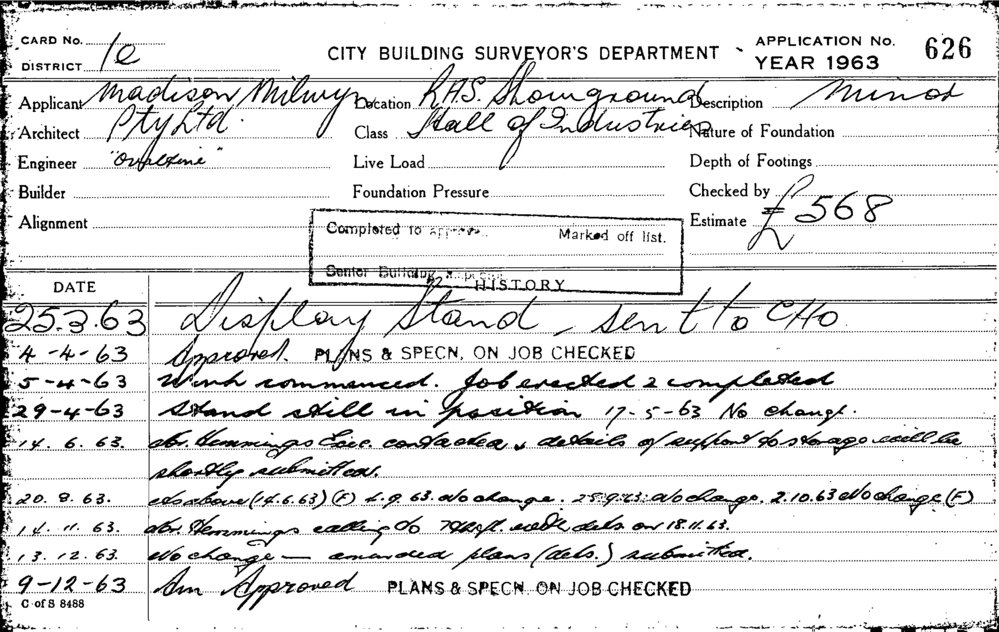 CARD No. CITY BUILDING SURVEYOR'S DEPARTMENT APPLICATION No. 626
DISTRICT 1e YEAR 1963
Applicant Madison Milwyn Location R.A.S. Showground Description Minor
Architect Pty Ltd. Class Hall of Industries Nature of Foundation
Engineer "Ovaltine" Live Load Depth of Footings
Builder Foundation Pressure Checked by
Alignment Estimate £568
Completed to Marked off list.
Senior Building
HISTORY
DATE
25.3.63 Display Stand - sent to CHO
4-4-63 Approved. PLANS & SPECN. ON JOB CHECKED
5-4-63 Work commenced. Job erected & completed
29-4-63 Stand still in position 17-5-63 No change.
14.6.63. Mr. Hemmings contacted & details of support to storage will be
shortly submitted.
20.8.63. As above (14.6.63) (F) 4.9.63. No change. 25.9.63. No change. 2.10.63 No change (F)
14.11.63. Mr. Hemmings calling to with dets on 18.11.63.
13.12.63. No change — amended plans (dets.) submitted.
9-12-63 Am Approved PLANS & SPECN. ON JOB CHECKED
C of S 8488